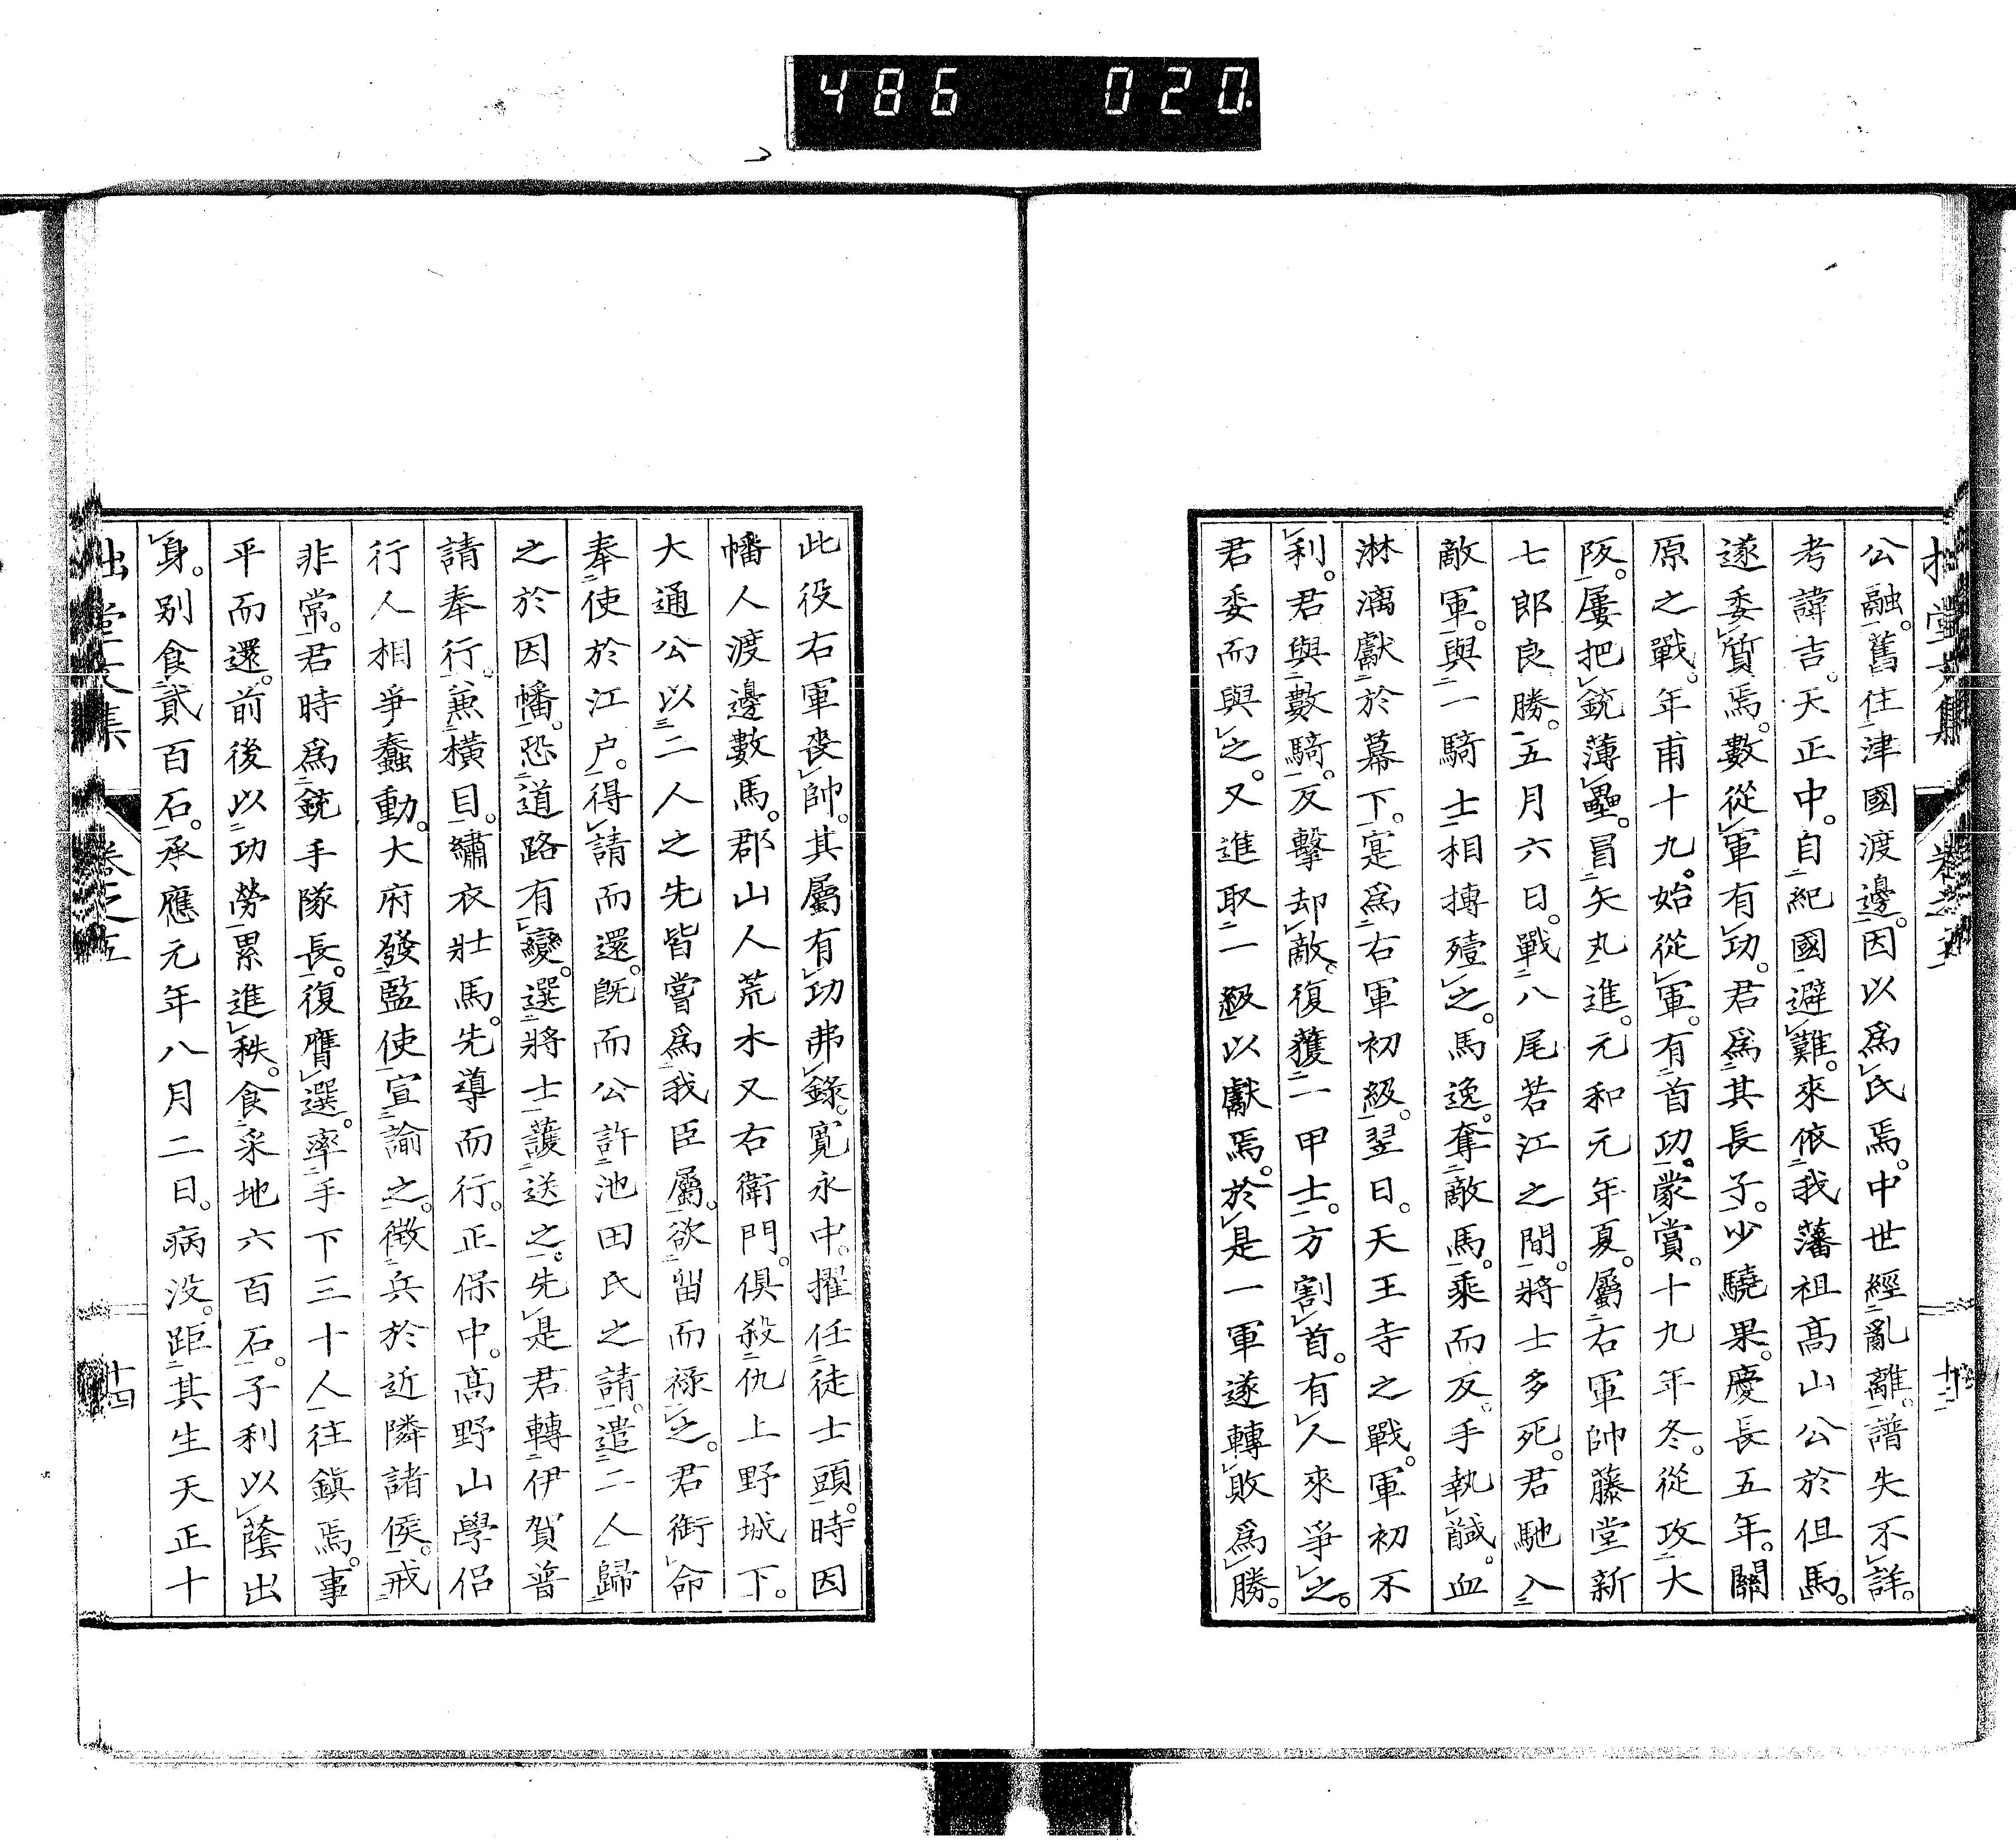 486 020
公融。舊住津國渡邊。因以爲氏焉。中世經亂離。譜失不詳。
考諱吉。天正中。自紀國避難。來依我藩祖高山公於但馬。
遂委質焉。數從軍有功。君爲其長子。少驍果。慶長五年。關
原之戰。年甫十九。始從軍。有首功。蒙賞。十九年冬。從攻大
阪。屢把銃薄壘。冒矢丸進。元和元年夏。屬右軍帥藤堂新
七郎良勝。五月六日。戰八尾若江之間。將士多死。君馳入
敵軍。與一騎士相搏殪之。馬逸。奪敵馬。乘而反。手執馘。血
淋漓獻於幕下。寔爲右軍初級。翌日。天王寺之戰。軍初不
利。君與數騎。反擊却敵。復獲一甲士。方割首。有人來爭之。
君委而與之。又進取一級以獻焉。於是一軍遂轉敗爲勝。
此役右軍喪帥。其屬有功弗錄。寬永中。擢任徒士頭。時因
幡人渡邊數馬。郡山人荒木又右衛門。俱殺仇上野城下。
大通公以二人之先皆嘗爲我臣屬。欲留而祿之。君銜命
奉使於江戶。得請而還。既而公許池田氏之請。遣二人歸
之於因幡。恐道路有變。選將士護送之。先是君轉伊賀普
請奉行。兼橫目。繡衣壯馬。先導而行。正保中。高野山學侶
行人相爭蠢動。大府發監使宣諭之。徵兵於近隣諸侯。戒
非常。君時爲銃手隊長。復膺選。率手下三十人往鎭焉。事
平而還。前後以功勞累進秩。食采地六百石。子利以蔭出
身。別食貳百石。承應元年八月二日。病沒。距其生天正十
拙堂文集 卷之五 十四